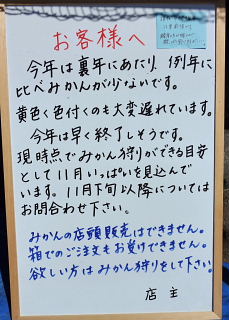 お客様へ
今年は裏年にあたり、例年に
比べみかんが少ないです。
黄色く色付くのも大変遅れています。
今年は早く終了しそうです。
現時点でみかん狩りができる目安
として11月いっぱいを見込んで
います。11月下旬以降については
お問合わせ下さい。
みかんの店頭販売はできません。
箱でのご注文もお受けできません。
欲しい方はみかん狩りをして下さい。
店主